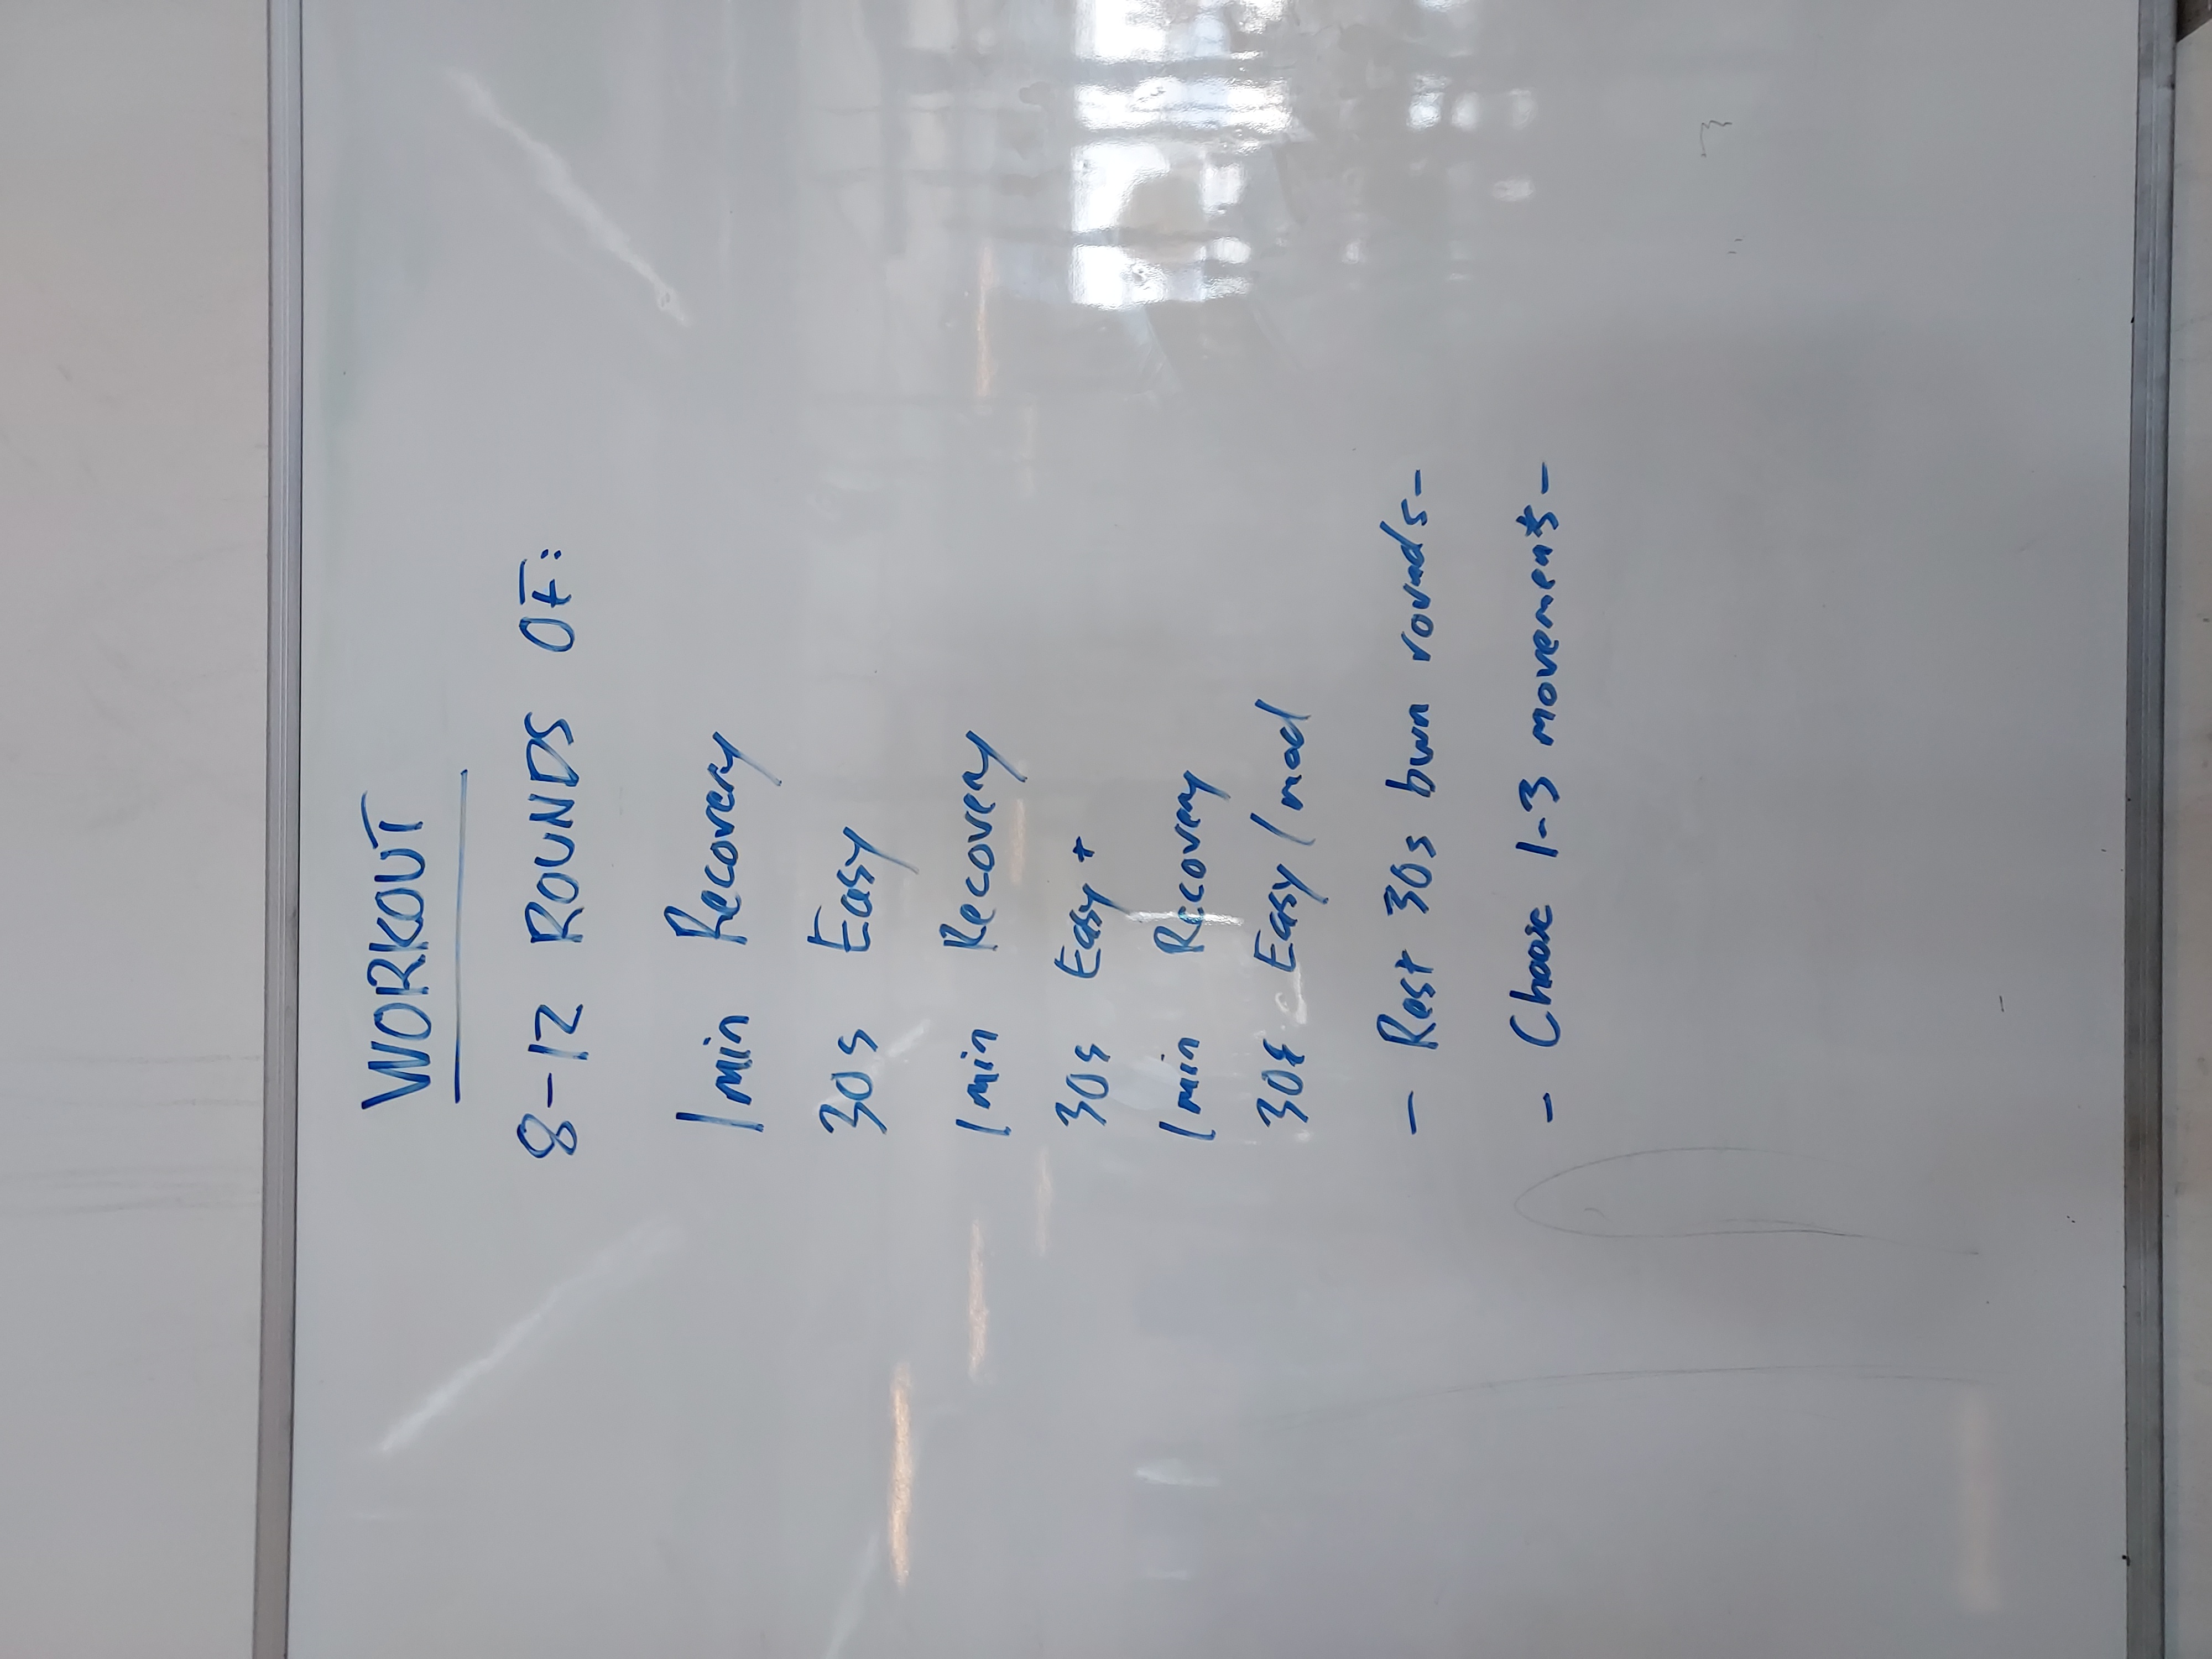 WORKOUT
8-12 ROUNDS OF:
1 min Recovery
30s Easy
1 min Recovery
30s Easy +
1 min Recovery
30s Easy/mod
- Rest 30s bwn rounds -
- Choose 1-3 movements -